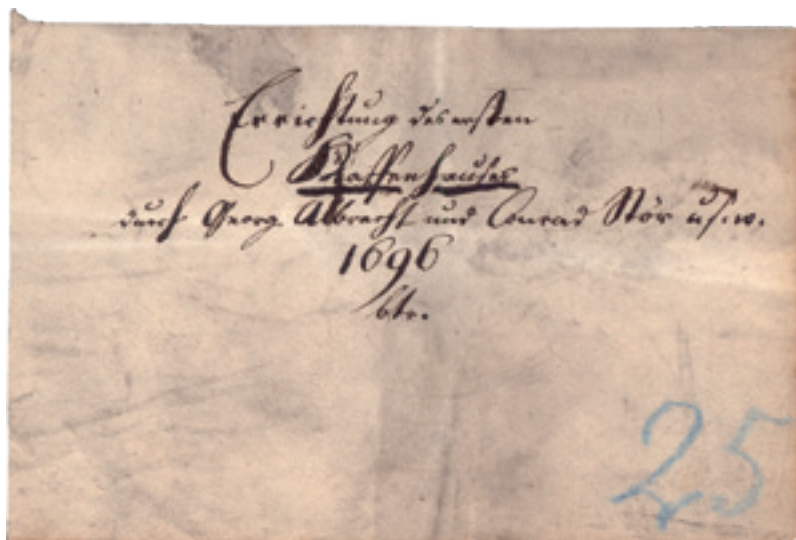 Errichtung des ersten
Kaffenhauses
durch Georg Albrecht und Conrad Stör u.s.w.
1696
btr.
25